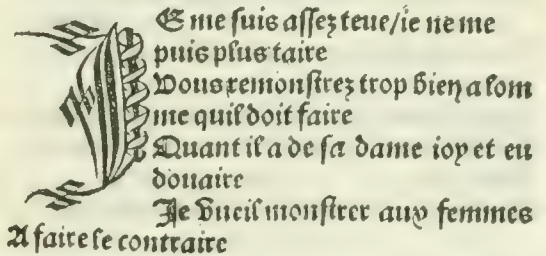 JE me suis assez teue/ie ne me
puis plus taire
Vous remonstrez trop bien a lom
me quil doit faire
Quant il a de sa dame ioy et eu
douaire
Je vueil monstrer aux femmes
A faire le contraire